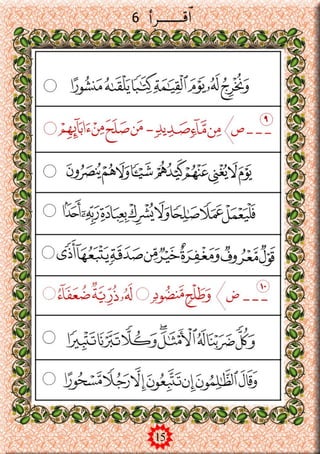 ٱقــرأ 6
وَنُخْرِجُ لَهُۥ يَوْمَ ٱلْقِيَـٰمَةِ كِتَـٰبًا يَلْقَىٰهُ مَنشُورًا
٩
ـ ـ ـ ص 〈 مِن مَّآءٍ صَدِيدٍ - مَن صَلَحَ مِنْ ءَابَآئِهِمْ
يَوْمَ لَا يُغْنِى عَنْهُمْ كَيْدُهُمْ شَيْـًٔا وَلَا هُمْ يُنصَرُونَ
فَلْيَعْمَلْ عَمَلًا صَـٰلِحًا وَلَا يُشْرِكْ بِعِبَادَةِ رَبِّهِۦٓ أَحَدًۢا
قَوْلٌ مَّعْرُوفٌ وَمَغْفِرَةٌ خَيْرٌ مِّن صَدَقَةٍ يَتْبَعُهَآ أَذًى
١٠
ـ ـ ـ ض 〈 وَطَلْحٍ مَّنضُودٍ لَهُۥ ذُرِّيَّةٌ ضُعَفَآءُ
وَكُلًّا ضَرَبْنَا لَهُ ٱلْأَمْثَـٰلَ ۖ وَكُلًّا تَبَّرْنَا تَتْبِيرًا
وَقَالَ ٱلظَّـٰلِمُونَ إِن تَتَّبِعُونَ إِلَّا رَجُلًا مَّسْحُورًا
15